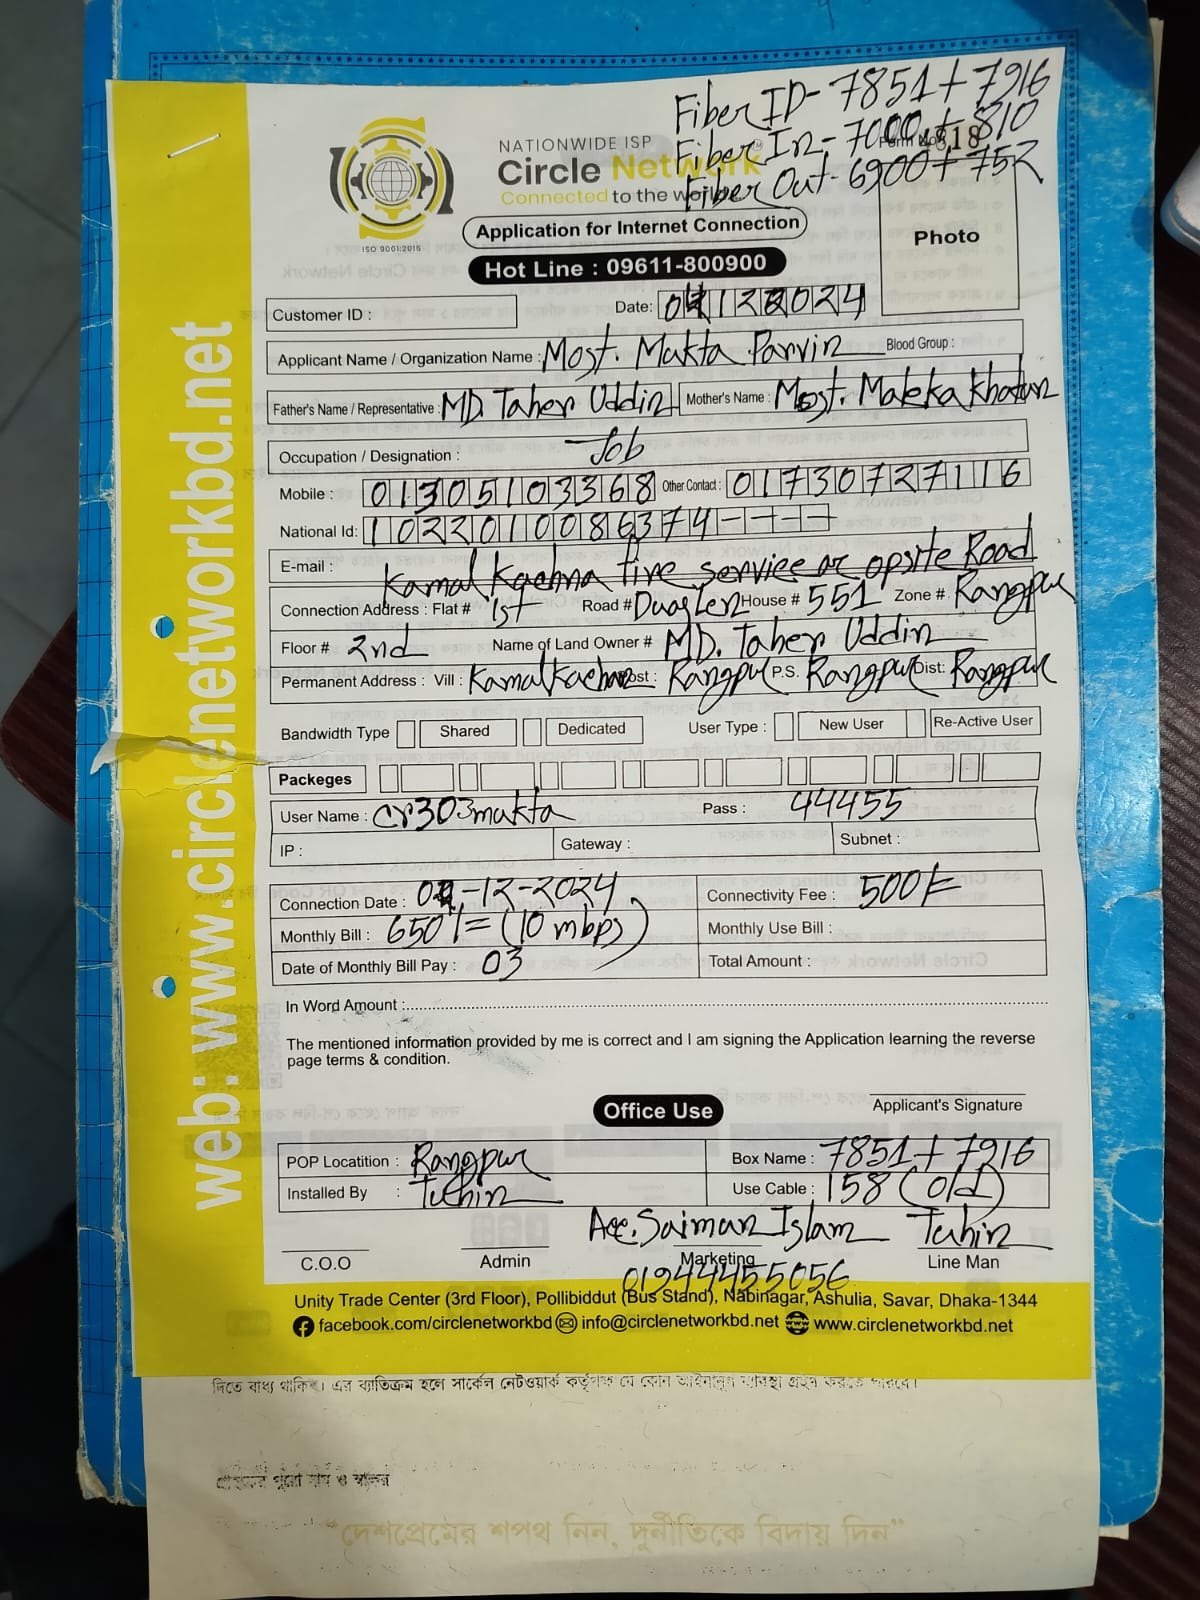 Fiber ID- 7851 + 7916
Fiber In- 7000 + 810
Fiber Out- 6900 + 752
NATIONWIDE ISP
Circle Network
Connected to the world
ISO 9001:2015
Application for Internet Connection
Hot Line : 09611-800900
Photo
web: www.circlenetworkbd.net
Customer ID :
Date: 122024
Applicant Name / Organization Name : Most. Makta Parvin Blood Group :
Father's Name / Representative : MD. Taher Uddin Mother's Name : Most. Maleka Khatun
Occupation / Designation : Job
Mobile : 01305103368 Other Contact : 01730727116
National Id: 1022010086374----
E-mail :
Kamal Kachna fire service ar opsite Road
Connection Address : Flat # 1st Road # House # 551 Zone #. Rangpur
Floor # 2nd Name of Land Owner # MD. Taher Uddin
Permanent Address : Vill : Kamalkachna Post : Rangpur P.S. Rangpur Dist: Rangpur
Bandwidth Type Shared Dedicated User Type : New User Re-Active User
Packeges
User Name : cr303makta Pass : 44455
IP : Gateway : Subnet :
Connection Date : -12-2024 Connectivity Fee : 500/=
Monthly Bill : 650/= (10 mbps) Monthly Use Bill :
Date of Monthly Bill Pay : 03 Total Amount :
In Word Amount :
The mentioned information provided by me is correct and I am signing the Application learning the reverse
page terms & condition.
Applicant's Signature
Office Use
POP Locatition : Rangpur Box Name : 7851 + 7916
Installed By : Tuhin Use Cable : 158 (old)
Saiman Islam Tuhin
C.O.O Admin Marketing Line Man
01944455056
Unity Trade Center (3rd Floor), Pollibiddut (Bus Stand), Nabinagar, Ashulia, Savar, Dhaka-1344
facebook.com/circlenetworkbd info@circlenetworkbd.net www.circlenetworkbd.net
দিতে বাধ্য থাকিব। এর ব্যতিক্রম হলে সার্কেল নেটওয়ার্ক কর্তৃপক্ষ যে কোন আইনানুগ ব্যবস্থা গ্রহন করতে পারবে।
গ্রাহকের পুরো নাম ও স্বাক্ষর
"দেশপ্রেমের শপথ নিন, দুর্নীতিকে বিদায় দিন"